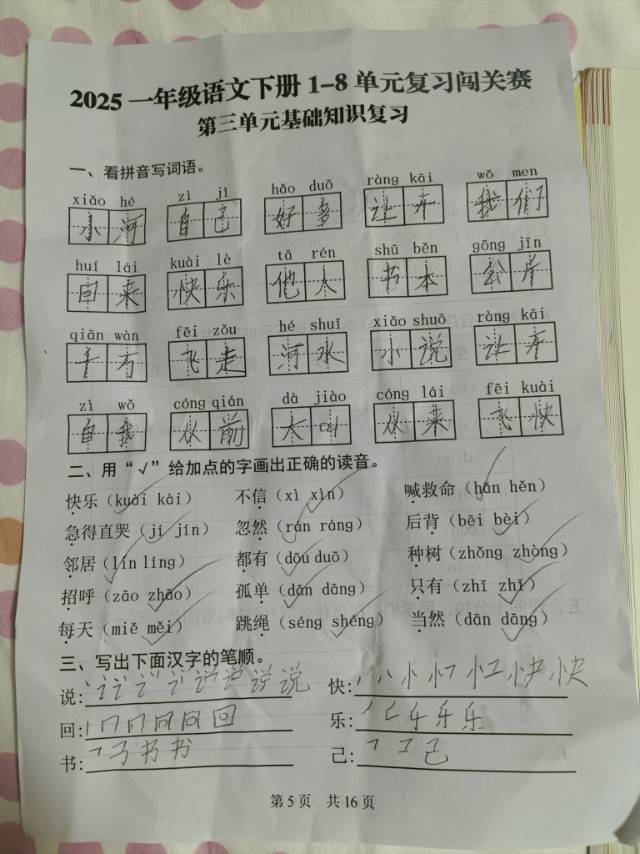 2025 一年级语文下册 1-8 单元复习闯关赛
第三单元基础知识复习
一、看拼音写词语。
xiǎo hé zì jǐ hǎo duō ràng kāi wǒ men
小河 自己 好多 让开 我们
huí lái kuài lè tā rén shū běn gōng jīn
回来 快乐 他人 书本 公斤
qiān wàn fēi zǒu hé shuǐ xiǎo shuō ràng kāi
千万 飞走 河水 小说 让开
zì wǒ cóng qián dà jiào cóng lái fēi kuài
自我 从前 大叫 从来 飞快
二、用“√”给加点的字画出正确的读音。
快乐（kuài kài） 不信（xì xìn） 喊救命（hǎn hěn）
急得直哭（jí jín） 忽然（rán ráng） 后背（bēi bèi）
邻居（lín líng） 都有（dōu duō） 种树（zhǒng zhòng）
招呼（zāo zhāo） 孤单（dān dāng） 只有（zhī zhǐ）
每天（miě měi） 跳绳（séng shéng） 当然（dān dāng）
三、写出下面汉字的笔顺。
说： 说 快： 快
回： 回 乐： 乐
书： 书 己： 己
第 5 页 共 16 页